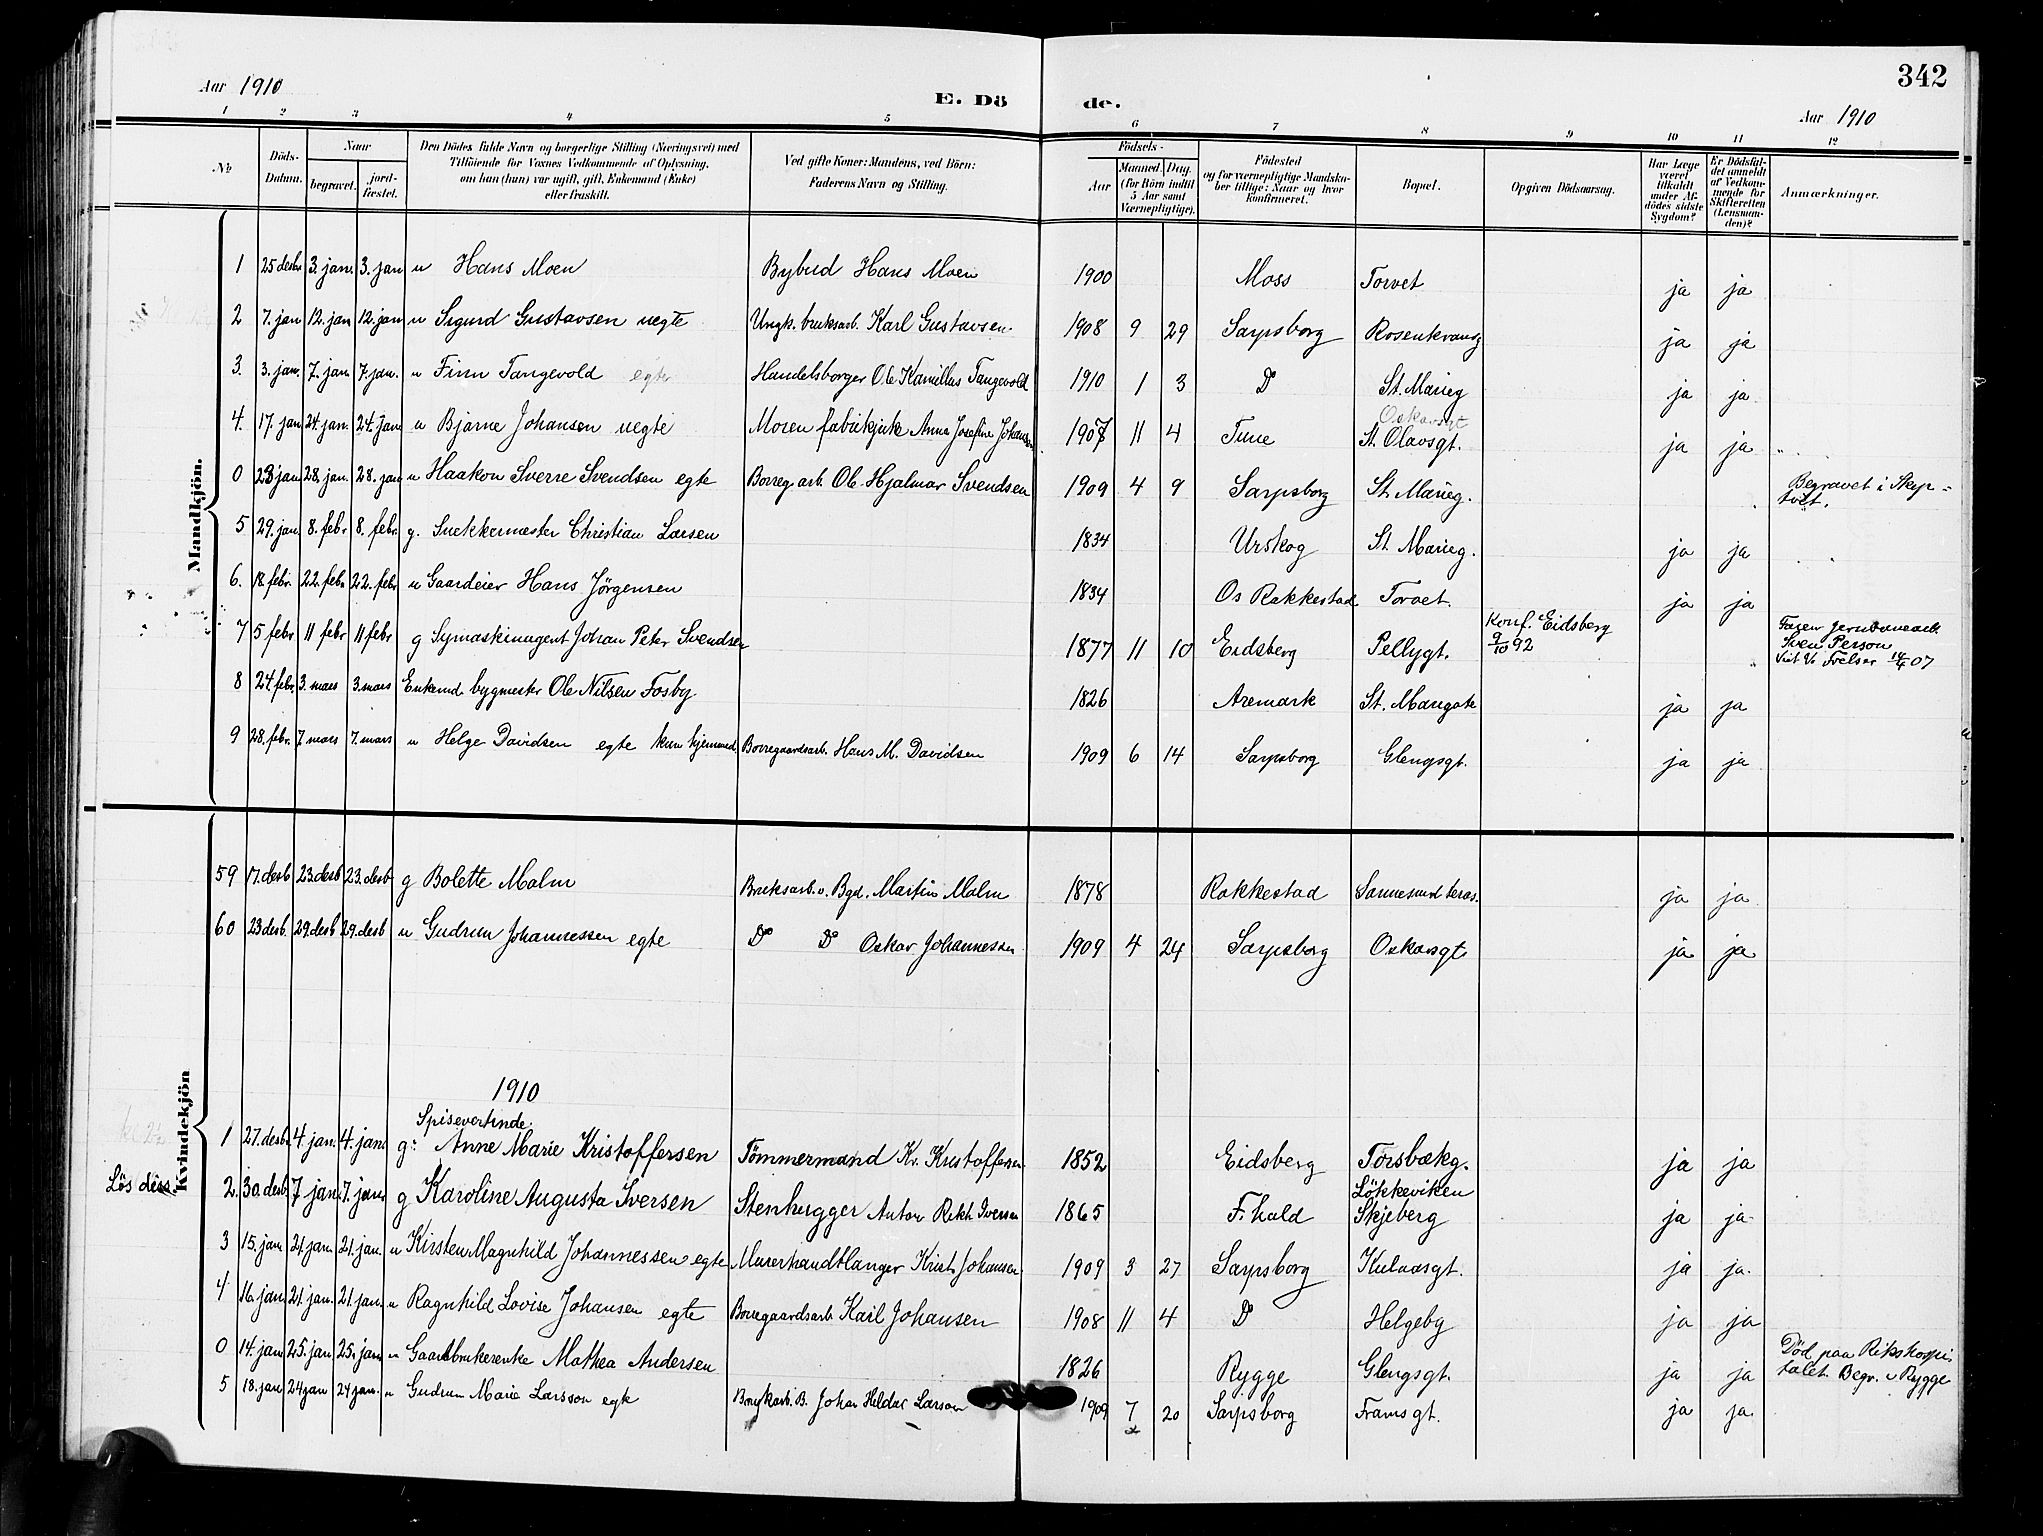 342
Aar 1910
E. Dö de.
Aar 1910
1 2 3 4 5 6 7 8 9 10 11 12
No
Döds-Datum.
Naar
begravet.
jord-fæstet.
Den Dödes fulde Navn og borgerlige Stilling (Næringsvei) med
Tilföiende for Voxnes Vedkommende af Oplysning,
om han (hun) var ugift, gift, Enkemand (Enke)
eller fraskilt.
Ved gifte Koner: Mandens, ved Börn:
Faderens Navn og Stilling.
Födsels-
Aar
Maaned. Dag.
(for Börn indtil
5 Aar samt
Værnepligtige).
Födested
og for værnepligtige Mandska-
ber tillige: Naar og hvor
konfirmeret.
Bopæl.
Opgiven Dödsaarsag.
Har Læge
været
tilkaldt
under Af-
dödes sidste
Sygdom?
Er Dödsfal-
det anmeldt
af Vedkom-
mende for
Skifteretten
(Lensman-
den)?
Anmærkninger.
Mandkjön.
1 25 desbr 3. jan. 3. jan u Hans Moen Bybud Hans Moen 1900 Moss Torvet ja ja
2 7. jan 12. jan 12. jan u Sigurd Gustavsen uegte Ungk. bruksarb. Karl Gustavsen. 1908 9 29 Sarpsborg Rosenkransg ja ja
3. 3. jan. 7. jan. 7. jan. u Finn Tangevold egte Handelsborger Ole Kamillus Tangevold 1910 1 3 Do St. Marieg ja ja
Oskarsgt
4. 17. jan 24. jan. 24. jan u Bjarne Johansen uegte Moren fabrikpike Anna Josefine Johansen 1907 11 4 Tune St. Olavsgt. ja ja
0 23 jan 28. jan. 28. jan u Haakon Sverre Svendsen egte Borreg. arb. Ole Hjalmar Svendsen 1909 4 9 Sarpsborg St. Marieg. Begravet i Skip-
tvet.
5 29. jan. 8. febr 8. febr. g. Snekkermester Christian Larsen 1834 Urskog St. Marieg. ja ja
6. 18. febr. 22. febr 22. febr u Gaardeier Hans Jörgensen 1834 Os Rakkestad Torvet. ja ja
7 5 febr. 11 febr 11 febr g Symaskinagent Johan Peter Svendsen 1877 11 10 Eidsberg Pellygt. Konf. Eidsberg
9/10 92
Faren jernbanearb.
Sven Person
8 24. febr. 3. mars 3. mars Enkemd. bygmester Ole Nilsen Fosby 1826 Aremark St. Mariegate ja ja
9 28. febr. 7 mars 7. mars u Helge Davidsen egte kun hjemmed. Borregaardsarb. Hans M. Davidsen 1909 6 14 Sarpsborg Glengsgt. ja ja
Kvindekjön
59 17. desb 23. desb 23. desb g Bolette Malm Bruksarb. v. Bgd. Martin Malm 1878 Rakkestad Sannesund teras. ja ja
60 23 desb. 29. desb 29. desb u Gudrun Johannessen egte Do Do Oskar Johannessen 1909 4 24 Sarpsborg Oskarsgt ja ja
1910
Spisevertinde.
1 27. desb. 4. jan. 4. jan. g. Anne Marie Kristoffersen Tömmermand Kr. Kristoffersen 1852 Eidsberg Torsbækg. ja ja
Lös diss. 2. 30. desb. 7 jan. 7. jan. g Karoline Augusta Iversen Stenhugger Anton Rikh. Iversen 1865 F.hald Lökkeviken
Skjeberg ja ja
3 15. jan 21. jan. 21. jan. u Kirsten Magnhild Johannessen egte Murerhandtlanger Krist. Johansen. 1909 3 27 Sarpsborg Kulaasgt. ja ja.
4 16. jan 21. jan. 21. jan. u Ragnhild Lovise Johansen egte Borregaardsarb. Karl Johansen 1908 11 4 Do Helgeby ja ja
0 14. jan 25. jan 25. jan u Gaardbrukerenke Mathea Andersen 1826 Rygge Glengsgt. ja ja Död paa Rikshospi
talet. Begr. i Rygge
5 18. jan 24 jan 24 jan. u Gudrun Marie Larsson egte Johan Hildar Larson 1909 7 20 Sarpsborg Framsgt. ja ja.